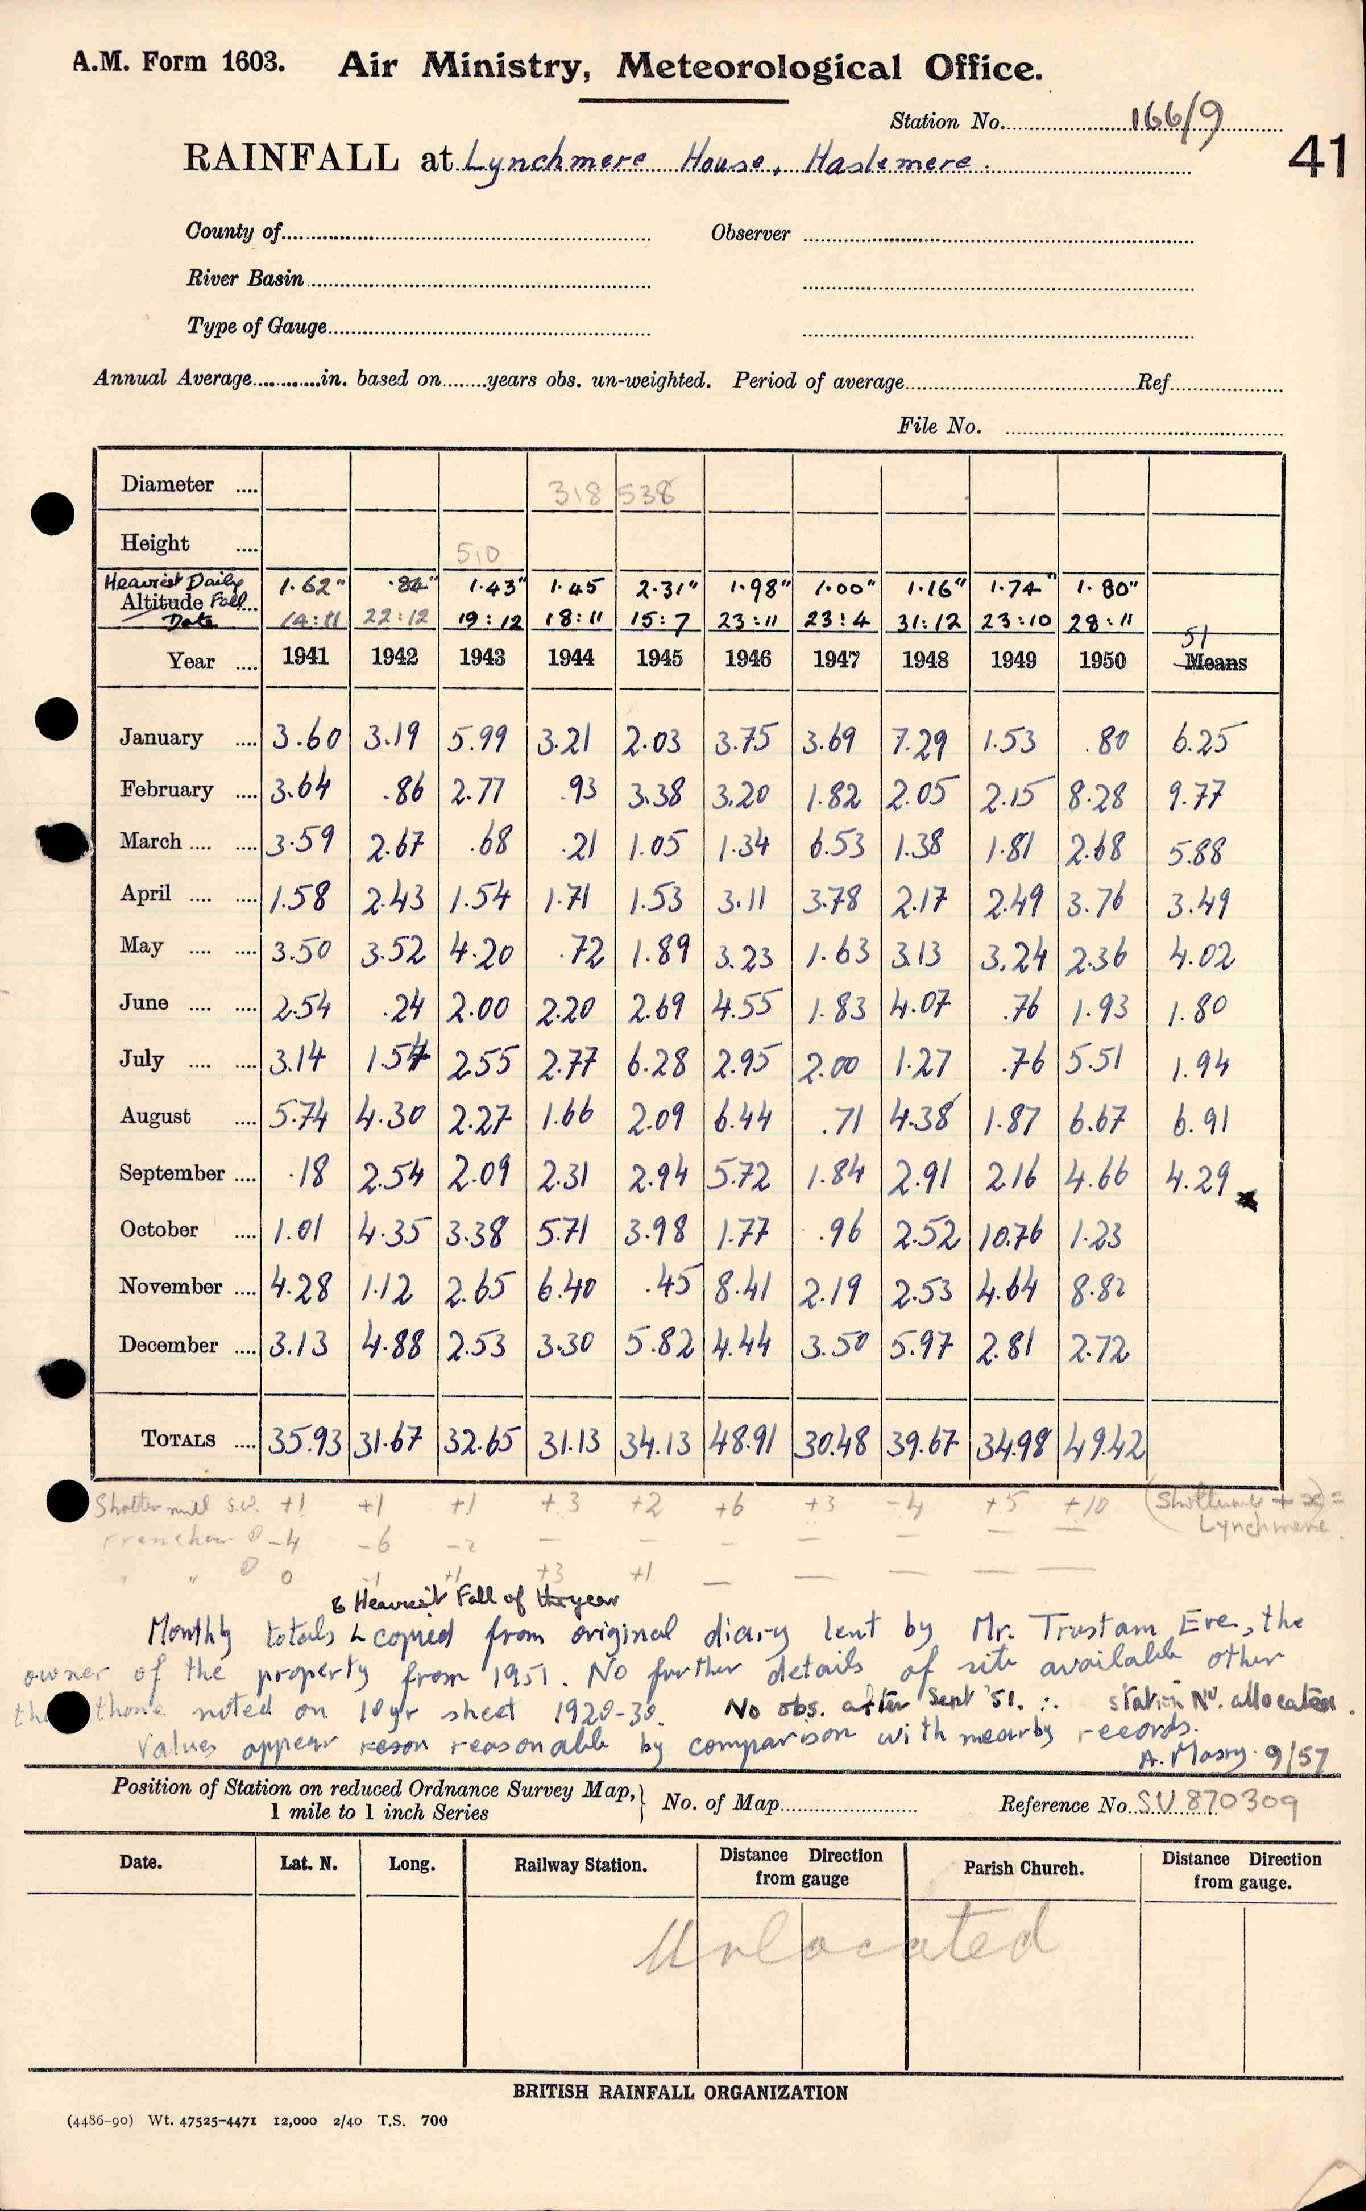 A.M. Form 1603. Air Ministry, Meteorological Office.
Station No. 166/9
RAINFALL at Lynchmere House, Haslemere. 41
County of Observer
River Basin
Type of Gauge
Annual Average in. based on years obs. un-weighted. Period of average Ref.
File No.
Diameter .... 318 538
Height .... 510
Heaviest Daily 1.62" .84" 1.43" 1.45 2.31" 1.98" 1.00" 1.16" 1.74" 1.80"
Altitude Fall
Date 14:11 22:12 19:12 18:11 15:7 23:11 23:4 31:12 23:10 28:11
Year .... 1941 1942 1943 1944 1945 1946 1947 1948 1949 1950 51 Means
January .... 3.60 3.19 5.99 3.21 2.03 3.75 3.69 7.29 1.53 .80 6.25
February .... 3.64 .86 2.77 .93 3.38 3.20 1.82 2.05 2.15 8.28 9.77
March .... .... 3.59 2.67 .68 .21 1.05 1.34 6.53 1.38 1.81 2.68 5.88
April .... .... 1.58 2.43 1.54 1.71 1.53 3.11 3.78 2.17 2.49 3.76 3.49
May .... .... 3.50 3.52 4.20 .72 1.89 3.23 1.63 3.13 3.24 2.36 4.02
June .... .... 2.54 .24 2.00 2.20 2.69 4.55 1.83 4.07 .76 1.93 1.80
July .... .... 3.14 1.57 2.55 2.77 6.28 2.95 2.00 1.27 .76 5.51 1.94
August .... 5.74 4.30 2.27 1.66 2.09 6.44 .71 4.38 1.87 6.67 6.91
September .... .18 2.54 2.09 2.31 2.94 5.72 1.84 2.91 2.16 4.66 4.29
October .... 1.01 4.35 3.38 5.71 3.98 1.77 .96 2.52 10.76 1.23
November .... 4.28 1.12 2.65 6.40 .45 8.41 2.19 2.53 4.64 8.82
December .... 3.13 4.88 2.53 3.30 5.82 4.44 3.50 5.97 2.81 2.72
TOTALS .... 35.93 31.67 32.65 31.13 34.13 48.91 30.48 39.67 34.98 49.42
Shottermill S.W. +1 +1 +1 +3 +2 +6 +3 -4 +5 +10 (Shottermill + x) =
Lynchmere
-4 -6 -2 - - - - - - -
" " 0 -1 +1 +3 +1 - - - - -
& Heaviest Fall of the year
Monthly totals copied from original diary lent by Mr. Trustam Eve, the
owner of the property from 1951. No further details of site available other
than those noted on 10 yr sheet 1920-30. No obs. after Sept '51. ∴ station No. allocated.
Values appear reson reasonable by comparison with nearby records.
9/57
Position of Station on reduced Ordnance Survey Map,
1 mile to 1 inch Series No. of Map Reference No. SU 870309
Date. Lat. N. Long. Railway Station. Distance from gauge Direction Parish Church. Distance Direction from gauge.
Unlocated
BRITISH RAINFALL ORGANIZATION
(4486-90) Wt. 47525-4471 12,000 2/40 T.S. 700